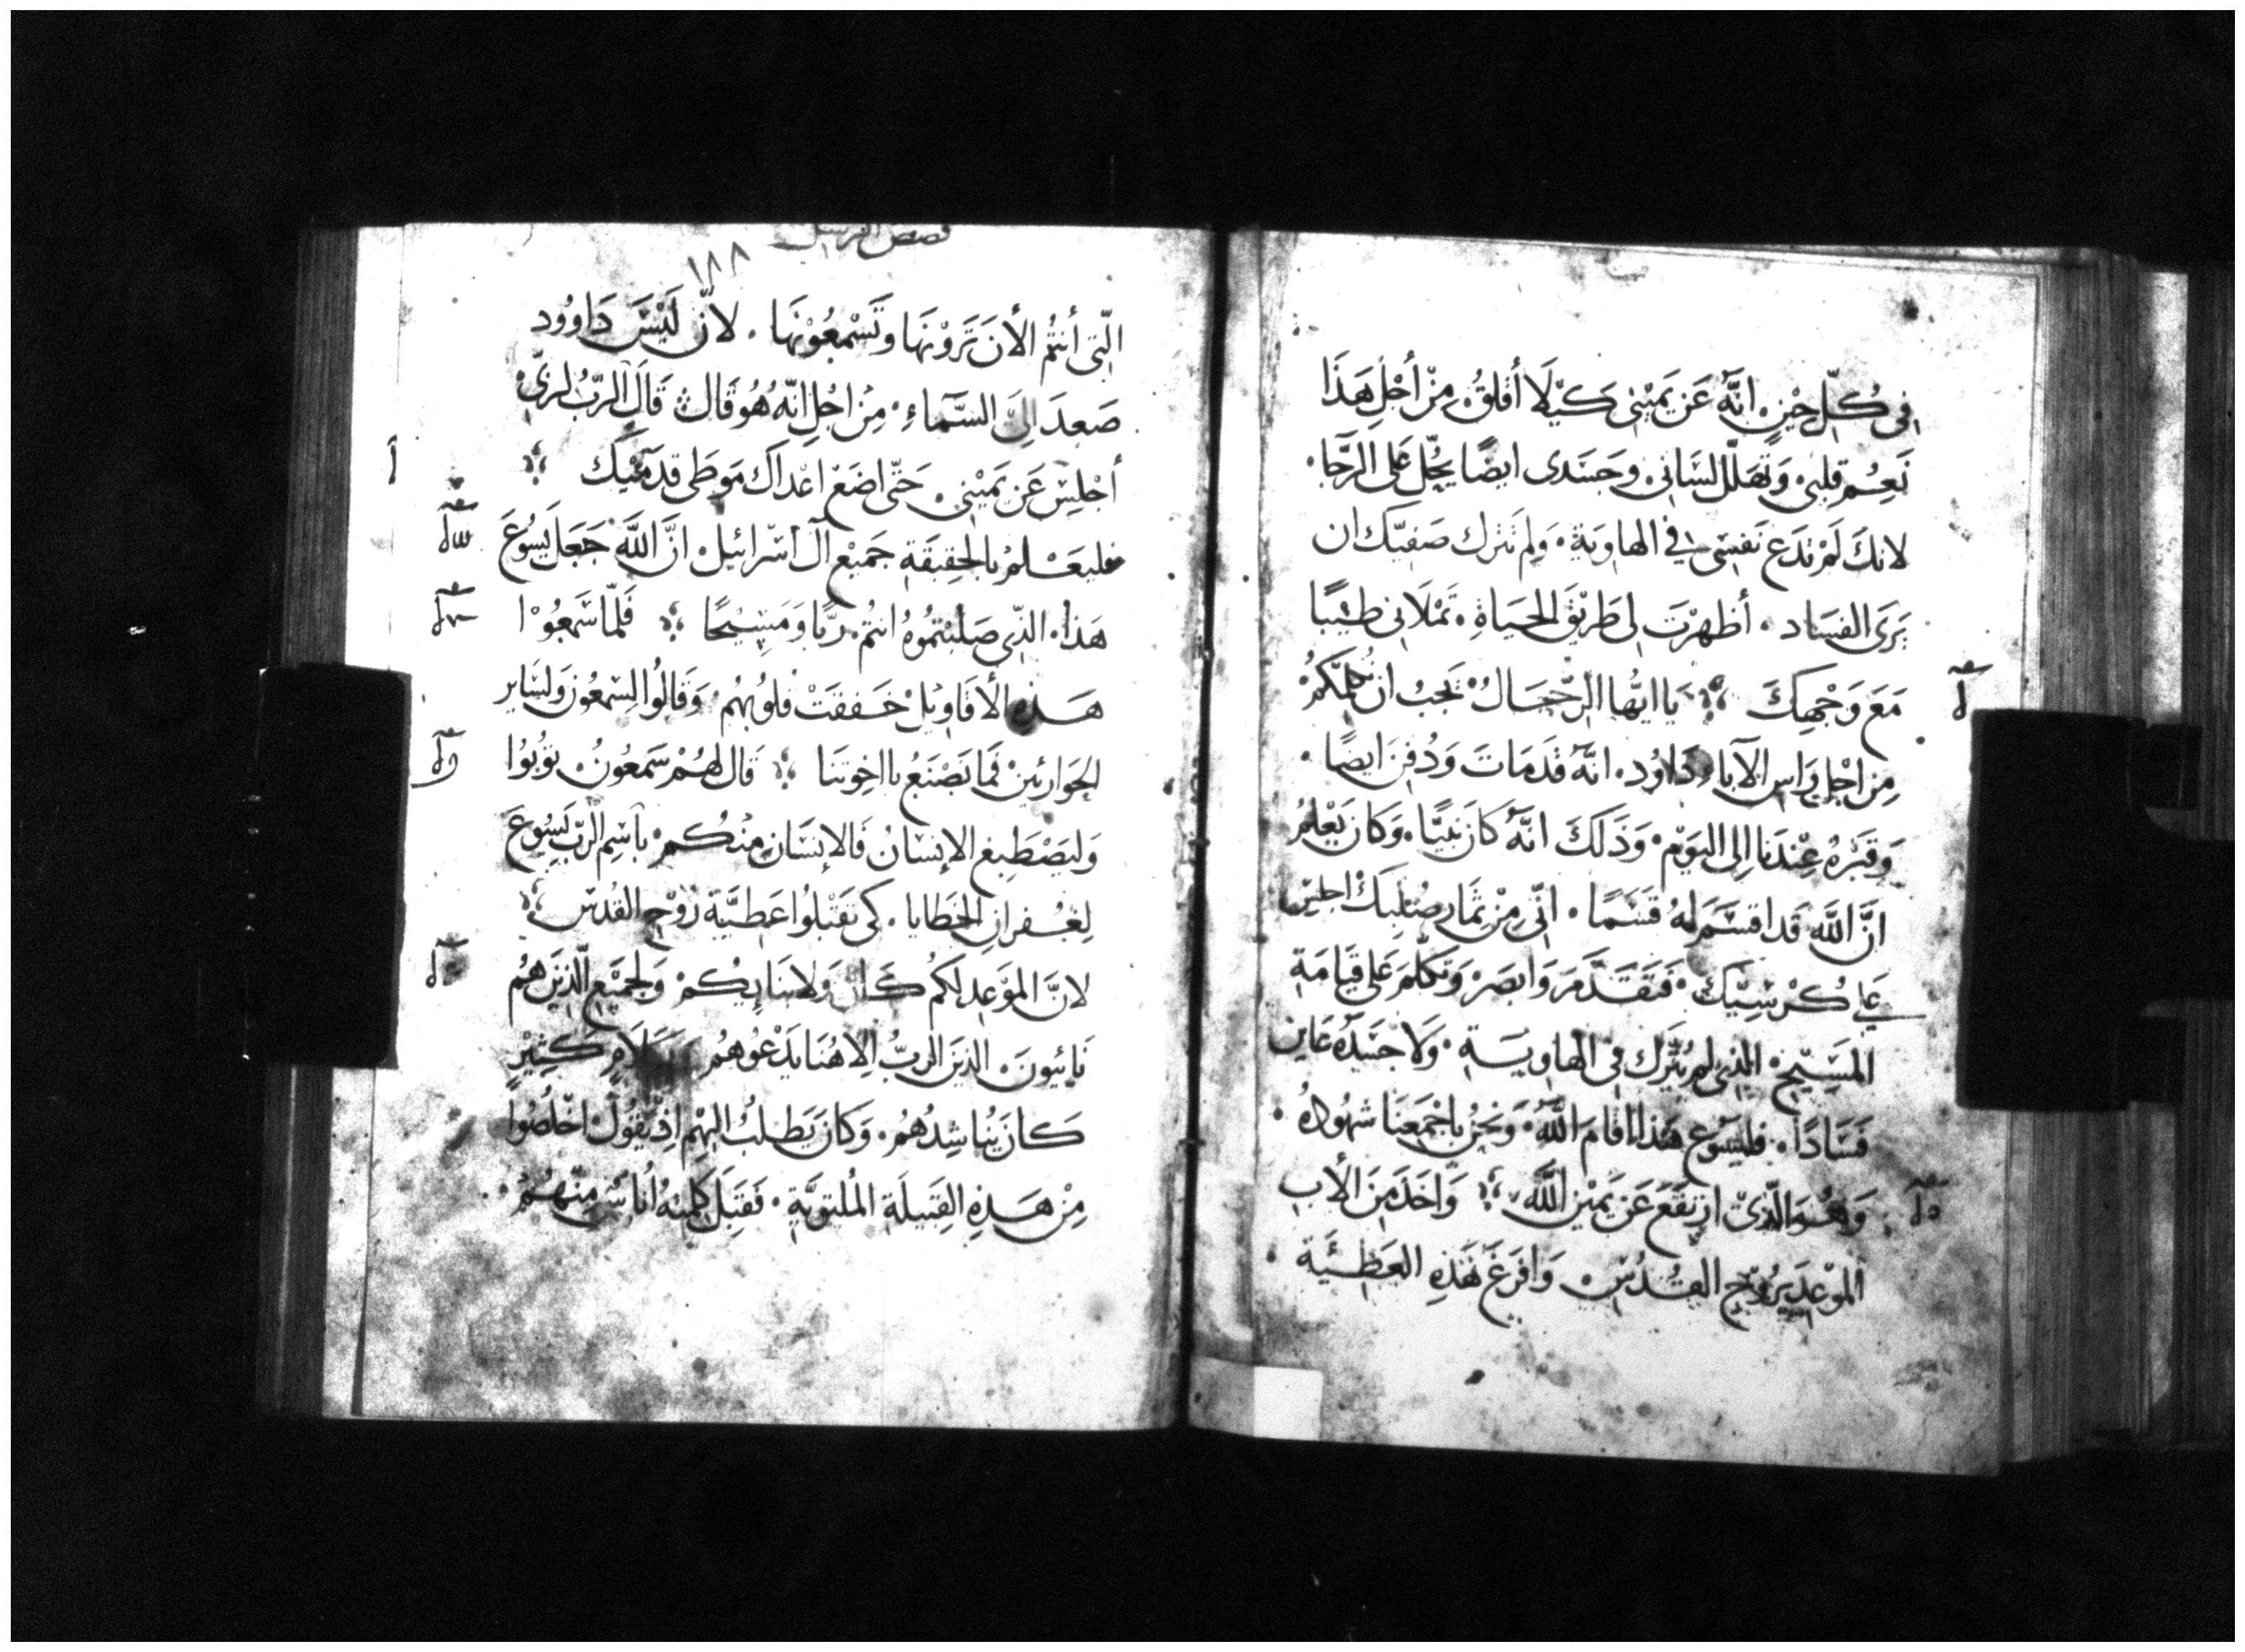 فِى كُلّ حِيْنٍ انّهُ عَن يَمِيْنى كَيْلَا أقلقُ مِنْ أجْلِ هَذَا
نَعِمُ قلبى وَتَهلّلَ لسَانى وجَسَدى ايضًا يحُلّ عَلى الرّجَا
لانكَ لَمْ تدَع نَفسى فى الهاويَة وَلم تترك صَفيّك ان
يَرَى الفسَاد أظهرْتَ لى طَريْقَ الحيَاةِ تَمْلَانى طيْبًا
مَعَ وَجْهِكَ يَا ايّها الرّجَالُ نَجبُ ان نُكلّمَكمُ
مِن اجْلِ رَاس الآبَاء دَاوُد انّهُ قَد مَات وَدُفِن ايضًا
وَقبْرُهُ عِنْدَنا الى اليَوْمِ وَذَلكَ انّهُ كَانَ نَبيًّا وَكانَ يَعْلمُ
انَّ اللّه قَد اقسَم لهُ قسَمًا انّى مِنْ ثمَار صُلبكَ اجلِسْ
عَلى كُرْسِيّكَ فَتقدّمَ وَابصَرَ وَتكلّمَ عَلى قيَامَةِ
المَسِيْحِ الذى لم يُترك فى الهاويَةِ وَلَا جسَدُهُ عَاين
فسَادًا فليسُوع هَذا اقامَ اللّهُ وَنَحْنُ باجْمَعِنَا شهُودُهُ
وَهُوَ الّذىْ ارتفعَ عَن يَمِيْنِ اللّه وَاخَدَ مِنَ الأب
المَوْعِدَ بِرُوْحِ القُدُسِ وَافرَغَ هَذِهِ العَطِيَّة
١٨٨
الّتى أنتُمُ الأن تَرَوْنَهَا وَتَسْمعُوْنَهَا لانْ لَيْسَ دَاوُود
صَعِدَ الىَ السَّمآءِ مِن اجْلِ انّه هُو قَال قَالَ الرّبُّ لرَبّى
أجْلِسْ عَن يَمِيْنى حَتّى اضَعَ اعْداك مَوطَى قدَمَيْكَ
فليَعْلمُ بالحقِيقَةِ جَميْع آل اسْرَائيل انَّ اللّه جَعَل يَسُوعَ
هَذا الذّى صَلبْتمُوهُ انتُم رَبًّا وَمَسِيْحًا فَلمّا سَمعُوْا
هَذِه الأقَاوِيْل خَفقَتْ قلوُبهُم وَقالُوا لسِمعُون وَلسَاير
الحوَاريّيْن فَمَا نَصْنَعُ يا اخوتَنَا قَال لهُمْ سَمعُونُ توُبُوا
وَليَصْطَبغ الإنسَانُ فَالإنسَان مِنْكُم باسْم الرّب يَسُوعَ
لِغُفرانِ الخطَايا كى تَقْبَلُوا عَطيَّةَ رُوْحِ القُدُسِ
لانَّ المَوْعِد لكمُ كانَ وَلابنَايكُمْ وَلجَميْع الّذيْنَ هُم
نَائيُونَ الذينَ الربُّ الاهُنَا يَدْعُوهُم وَبكَلَامٍ كَثِيْرٍ
كانَ يُناشِدُهُم وَكانَ يَطلبُ الَيْهِم اذ يَقُولُ اخْلُصُوا
مِنْ هَذِهِ القَبيلَةِ المُلتويَّةِ فَقبَلَ كلِمتهُ أُناسٌ مِنْهُمْ